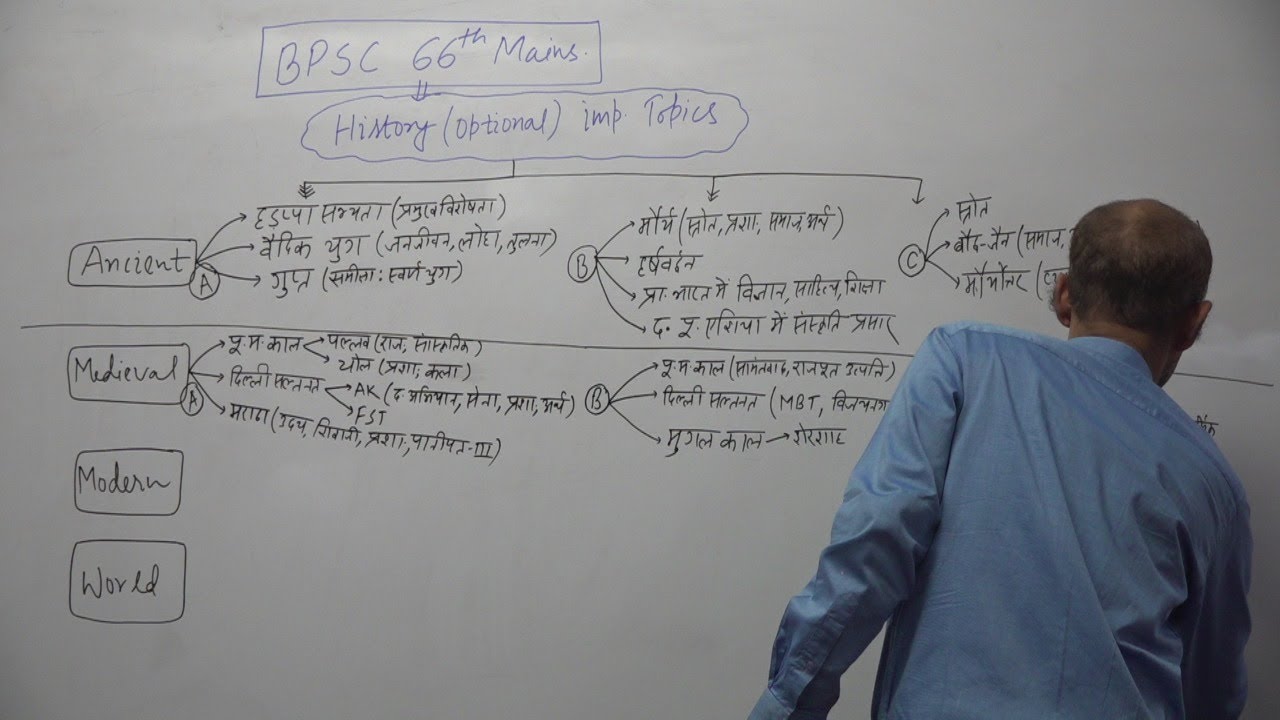 BPSC 66th Mains.
History (optional) imp. Topics
Ancient
A
हड़प्पा सभ्यता (प्रमुख विशेषता)
वैदिक युग (जनजीवन, लोहा, तुलना)
गुप्त (समीक्षा: स्वर्ण युग)
B
मौर्य (स्रोत, प्रशा., समाज, अर्थ)
हर्षवर्द्धन
प्रा. भारत में विज्ञान, साहित्य, शिक्षा
द. पू. एशिया में संस्कृति प्रसार
C
स्रोत
बौद्ध-जैन (समाज,
मौर्योत्तर (
Medieval
A
पू. म. काल
पल्लव (राज., सांस्कृतिक)
चोल (प्रशा., कला)
दिल्ली सल्तनत
AK (द. अभियान, सेना, प्रशा., अर्थ)
FST
मराठा (उदय, शिवाजी, प्रशा., पानीपत-III)
B
पू. म. काल (सामंतवाद, राजपूत उत्पत्ति)
दिल्ली सल्तनत (MBT, विजयनगर
मुगल काल → शेरशाह
Modern
World